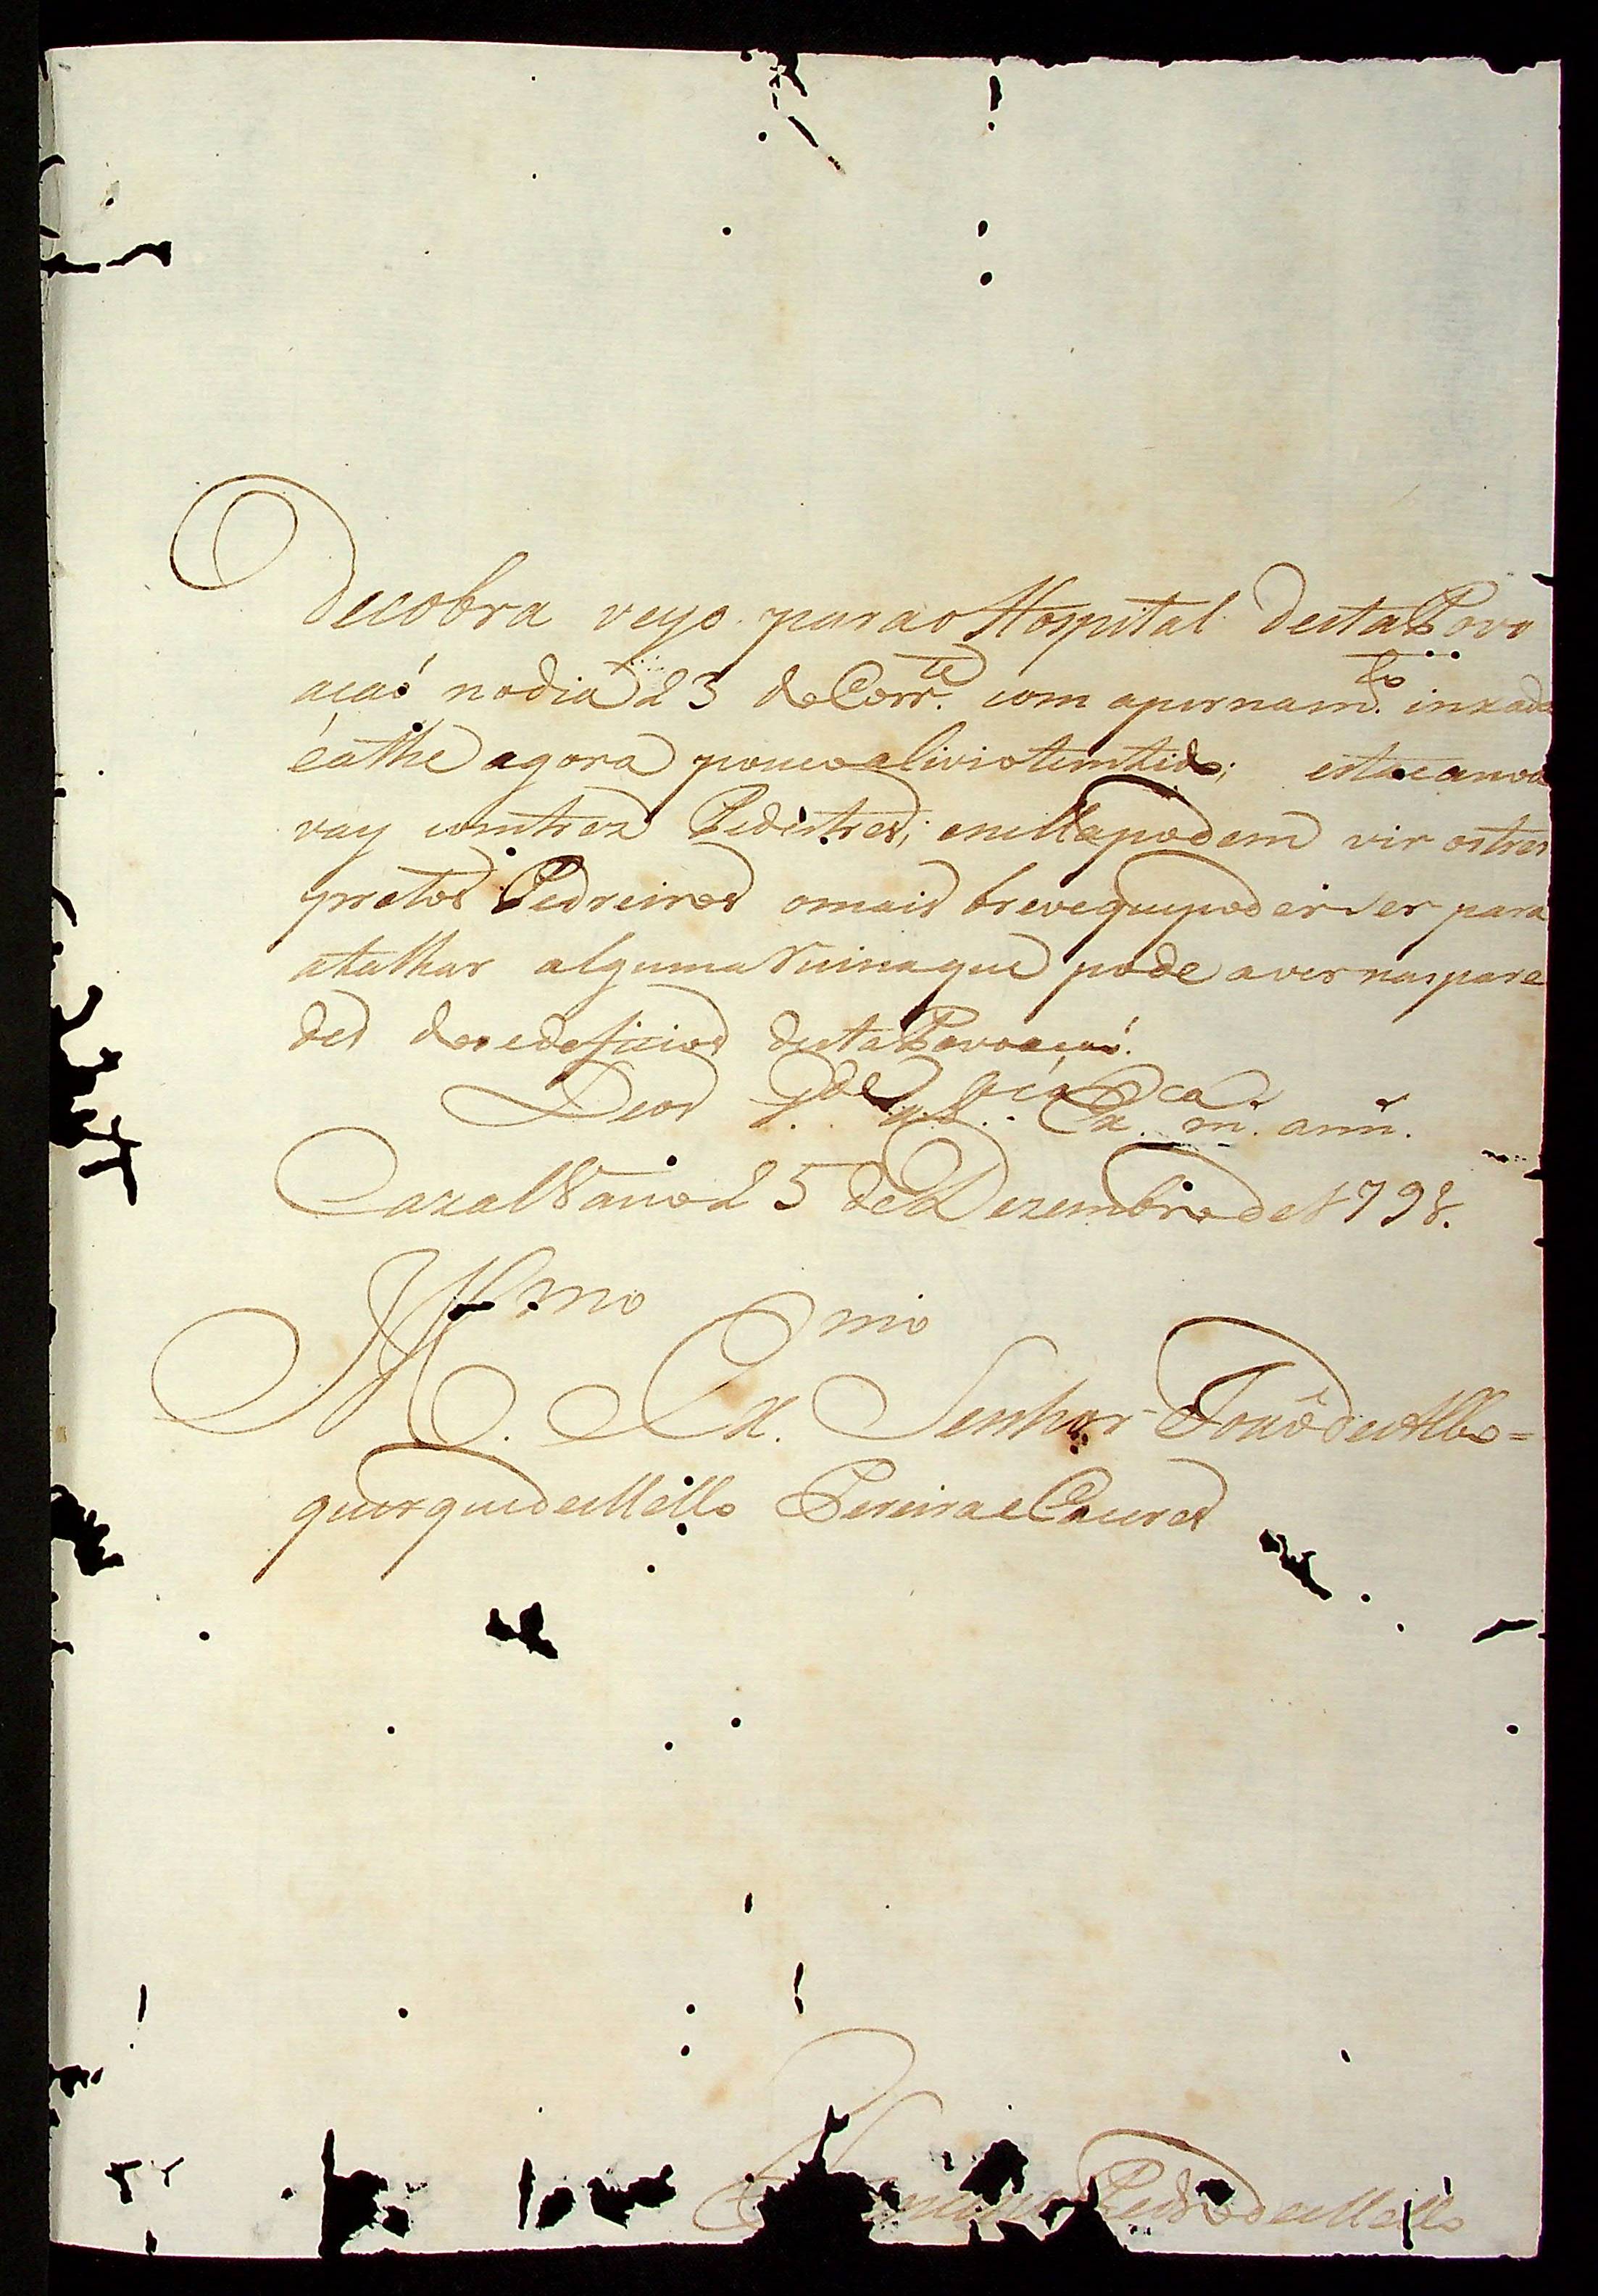 decobra veyo para o Hospital desta Povo
açaó no dia 23 do Corr.te com a perna m.to inxada
é athe agora pouco alivio tem tido; esta canoa
vay com trez Pedestres; e nella podem vir os tres
pretos Pedreiros o mais breve que poder ser para
atalhar alguma Ruina que pode aver nas pare
des dos edeficios desta Povoaçaó.
Deos g.de a V. Ex.ca m. ann.
Cazalvasco 25 de Dezembro de 1798.
Illmo
Ex.mo Senhor Joaõ de Albo=
querque de Mello Pereira e Caceres
Pedro de Mello